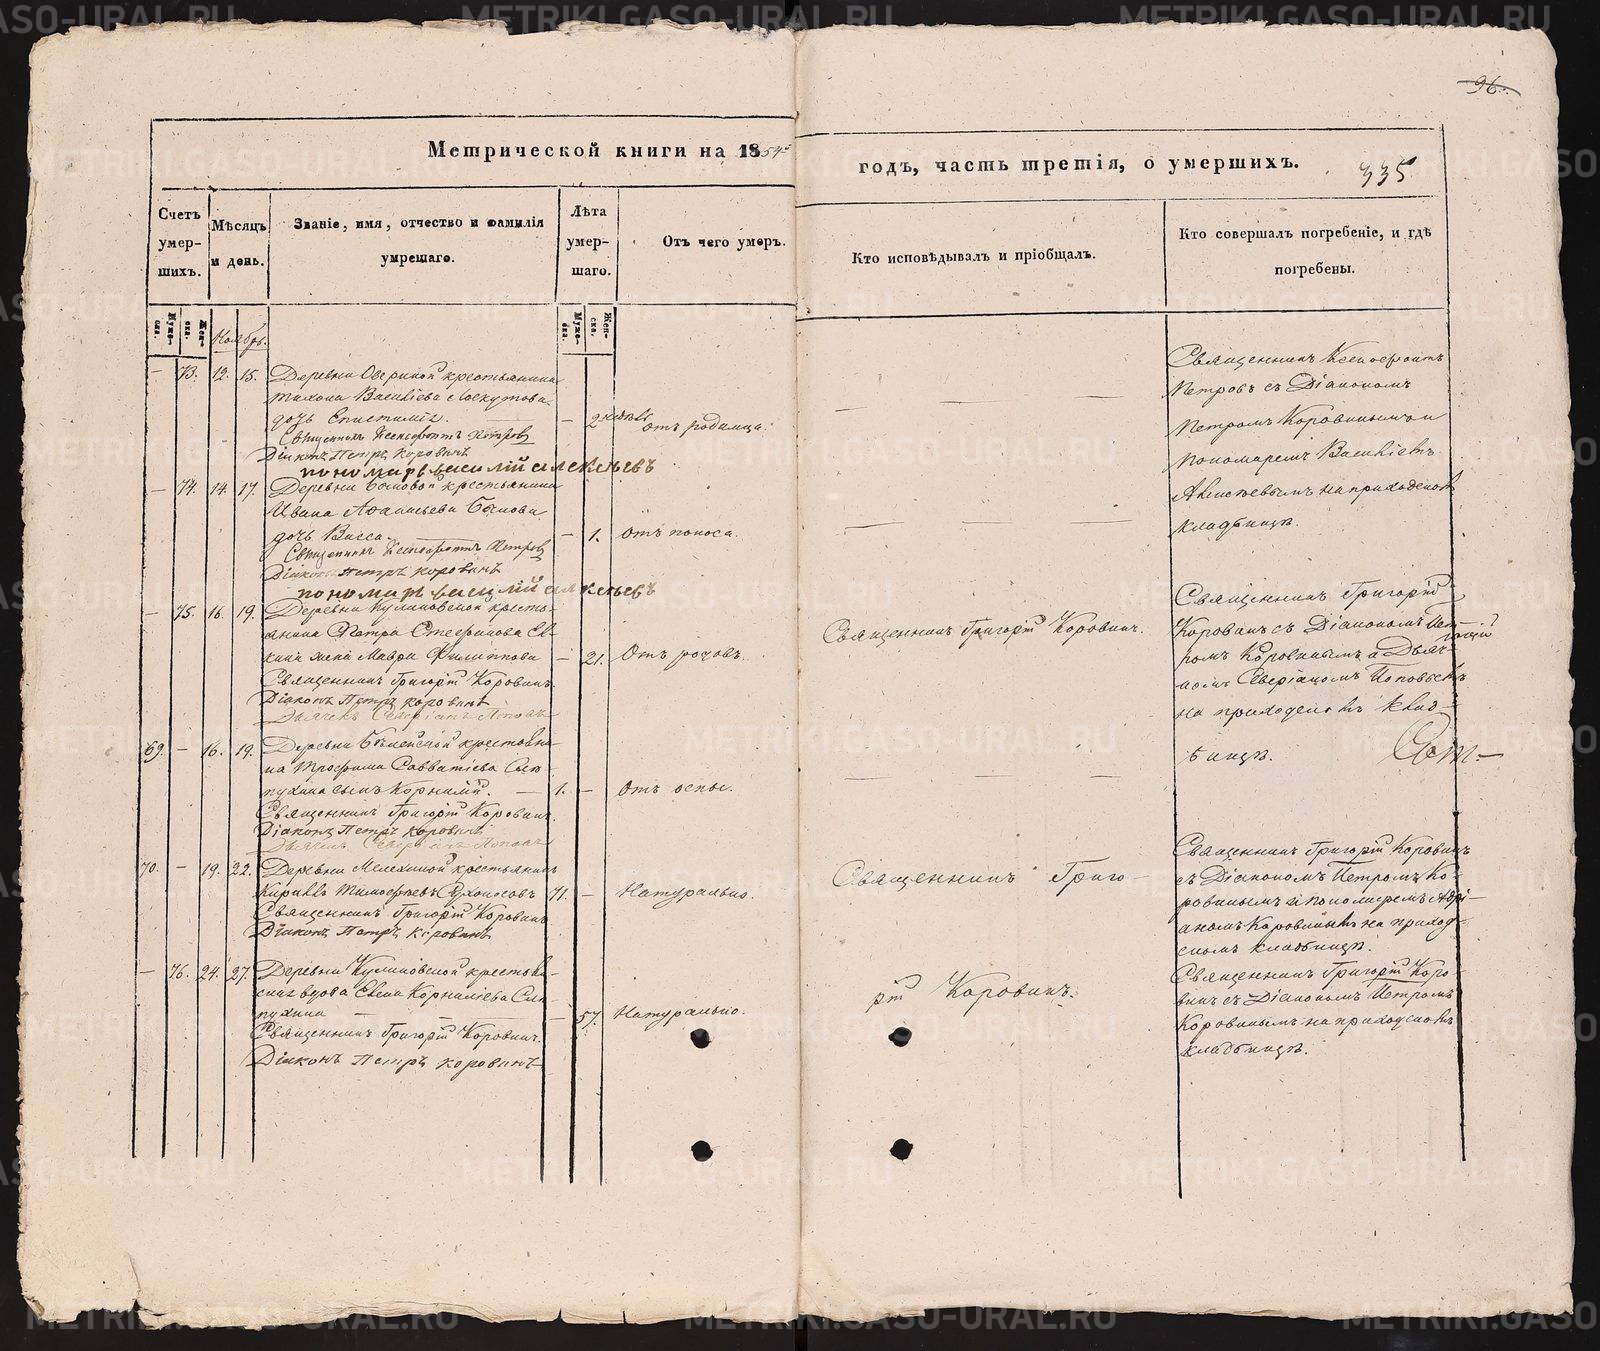 96.
Метрической книги на 1854й
годъ, часть третія, о умершихъ.
335
Счетъ умер-шихъ.
Мѣсяцъ и день.
Званіе, имя, отчество и фамилія умершаго.
Лѣта умер-шаго.
Отъ чего умеръ.
Кто исповѣдывалъ и пріобщалъ.
Кто совершалъ погребеніе, и гдѣ погребены.
Муже-ска.
Жен-ска.
Муже-ска.
Жен-ска.
Ноябрь.
— 73. 12. 15. Деревни Озериной крестьянина
Тихона Василіева Лоскутова
дочь Епистимія. — 2 отъ родимца.
Священникъ Ксенофонтъ Петровъ
Діаконъ Петръ Коровинъ
пономарь василій алексѣевъ
— 74. 14. 17. Деревни крестьянина
Ивана Аѳанасьева
дочь Васса. — 1. Отъ поноса.
Священникъ Ксенофонтъ Петровъ
Діаконъ Петръ Коровинъ
пономарь василій алексѣевъ
— 75. 16. 19. Деревни Куликовской кресть-
янина Петра Стефанова
жена Мавра Филиппова — 21. Отъ родовъ.
Священникъ Григорій Коровинъ
Діаконъ Петръ Коровинъ
Дьячекъ Северіанъ Поповъ
69. — 16. 19. Деревни крестьяни-
на Трофима Савватіева
сынъ Корнилій. — 1. — Отъ оспы.
Священникъ Григорій Коровинъ
Діаконъ Петръ Коровинъ
Дьячекъ Северіанъ Поповъ
70. — 19. 22. Деревни Мелехиной крестьянинъ
Кириллъ Тимофѣевъ Сухоносовъ 71. — Натурально.
Священникъ Григорій Коровинъ
Діаконъ Петръ Коровинъ
— 76. 24. 27. Деревни Куликовской крестьян-
ская вдова Елена Корниліева
— 57. Натурально.
Священникъ Григорій Коровинъ.
Діаконъ Петръ Коровинъ
Священникъ Григорій Коровинъ.
Священникъ Григо-
рій Коровинъ.
Священникъ Ксенофонтъ
Петровъ съ Діакономъ
Петромъ Коровинымъ и
Пономаремъ Василіемъ
Алексѣевымъ на приходскомъ
кладбищѣ.
Священникъ Григорій
Коровинъ съ Діакономъ Пет-
ромъ Коровинымъ и Дьяч-
комъ Северіаномъ Поповымъ
на приходскомъ клад-
бищѣ.
Священникъ Григорій Коровинъ
съ Діакономъ Петромъ Ко-
ровинымъ и пономаремъ Адрі-
аномъ Коровинымъ на приход-
скомъ кладбищѣ.
Священникъ Григорій Коро-
винъ съ Діакономъ Петромъ
Коровинымъ на приходскомъ
кладбищѣ.
METRIKI.GASO-URAL.RU